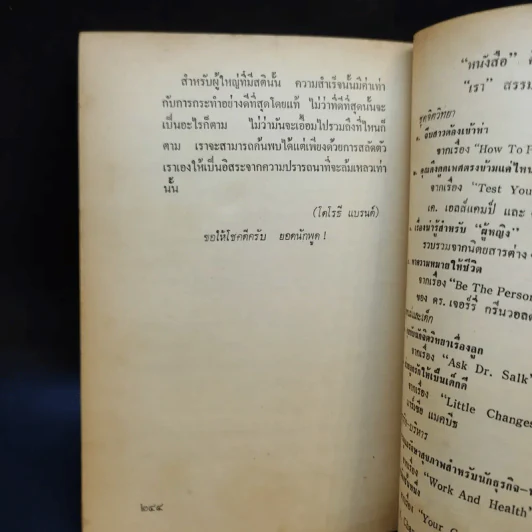 สำหรับผู้ใหญ่ที่มีสตินั้น ความสำเร็จนั้นมีค่าเท่า
กับการกระทำอย่างดีที่สุดโดยแท้ ไม่ว่าที่ดีที่สุดนั้นจะ
เป็นอะไรก็ตาม ไม่ว่ามันจะเอื้อมไปรวมถึงที่ไหนก็
ตาม เราจะสามารถค้นพบได้แต่เพียงด้วยการสลัดตัว
เราเองให้เป็นอิสระจากความปรารถนาที่จะล้มเหลวเท่า
นั้น
(โดโรธี แบรนด์)
ขอให้โชคดีครับ ยอดนักพูด !
๒๔๔
"หนังสือ"
"เรา" สรรม
ชุดจิตวิทยา
จากเรื่อง "How To F
จากเรื่อง "Test Your
เค. เอลล์แคมป์ และ
เรื่องน่ารู้สำหรับ "ผู้หญิง"
รวบรวมจากนิตยสารต่าง
หาความหมายให้ชีวิต
จากเรื่อง "Be The Person
ของ ดร. เจอร์รี่ กรีนวอลด
จิตวิทยาเรื่องลูก
จากเรื่อง "Ask Dr. Salk"
ให้เป็นเด็กดี
จากเรื่อง "Little Changes
แมคบีธ
บริหาร
สุขภาพสำหรับนักธุรกิจ-
เรื่อง "Work And Health"
เรื่อง "Your